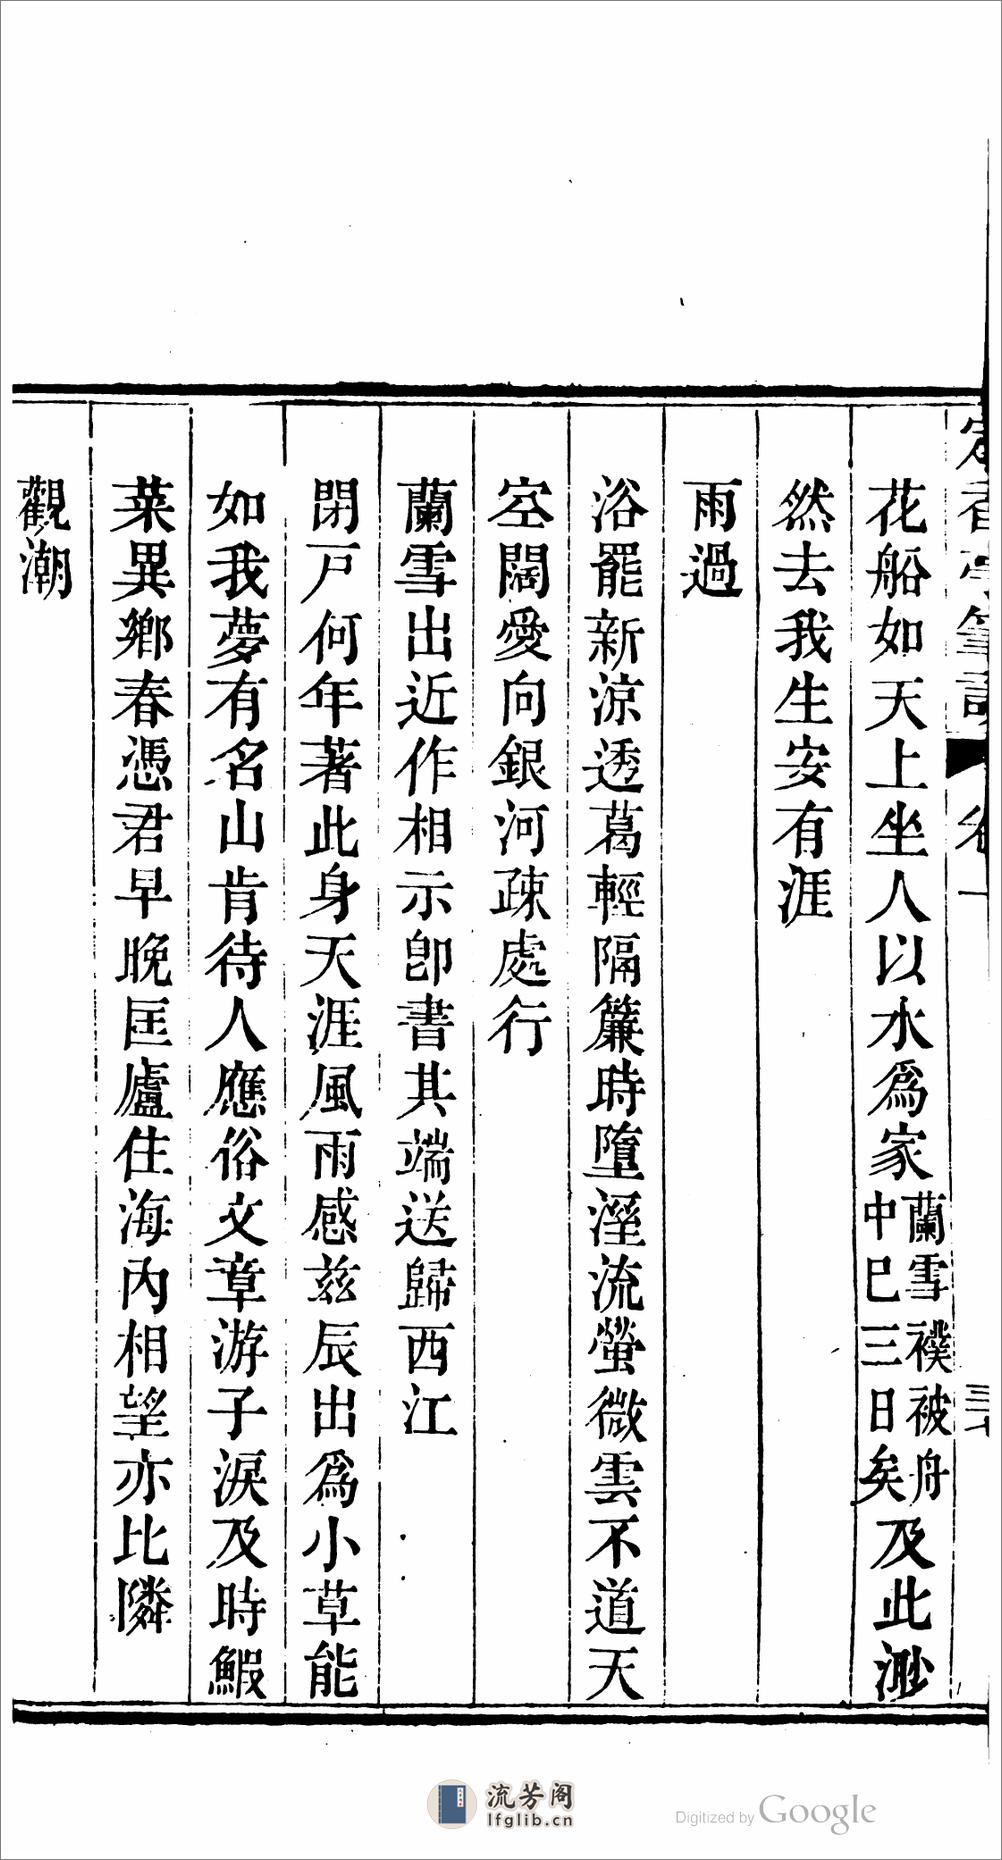 定香亭筆談 卷一
花船如天上坐人以水爲家蘭雪襆被舟中巳三日矣及此渺
然去我生安有涯
雨過
浴罷新涼透葛輕隔簾時墮溼流螢微雲不道天
空闊愛向銀河疎處行
蘭雪出近作相示卽書其端送歸西江
閉戸何年著此身天涯風雨感兹辰出爲小草能
如我夢有名山肯待人應俗文章游子淚及時鰕
菜異鄉春憑君早晚匡廬住海內相望亦比隣
觀潮
流芳阁
lfglib.cn
Digitized by Google